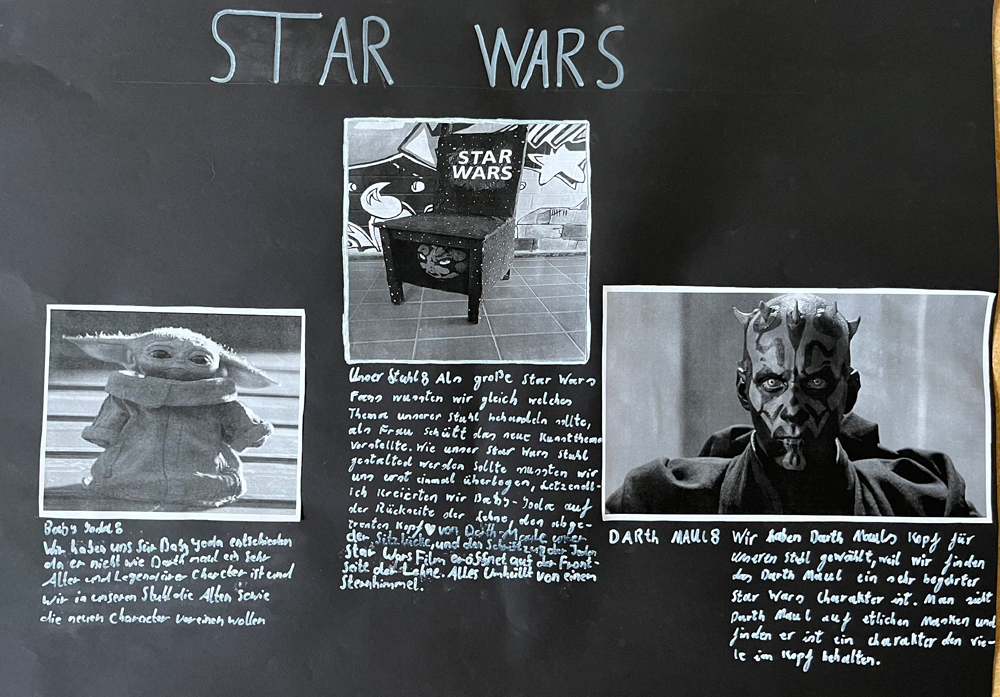 STAR WARS
STAR
WARS
Unser Stuhl: Als große Star Wars
Fans wussten wir gleich welches
Thema unserer Stuhl behandeln sollte,
als Frau Schütt das neue Kunstthema
vorstellte. Wie unser Star Wars Stuhl
gestalted werden sollte mussten wir
uns erst einmal überlegen, Letzendl-
ich kreierten wir Baby-Yoda auf
der Rückseite der Lehne, den abge-
trenten Kopf von Darth-Maule unter
der Sitzfläche und den Schriftzug der jeden
Star Wars Film eröffnet auf der Front-
seite der Lehne. Alles Umhüllt von einem
Sternhimmel.
Baby Yoda:
Wir haben uns für Baby Yoda entschieden
da er nicht wie Darth maul ein sehr
Alter und Legendärer Charcter ist und
wir in unseren Stuhl die Alten sowie
die neuen Character vereinen wollen
DARTH MAUL: Wir haben Darth Mauls Kopf für
unseren stuhl gewählt, weil wir finden
das Darth Maul ein sehr begehrter
Star Wars Charakter ist. Man sieht
Darth Maul auf etlichen Masken und
finden er ist ein charakter den vie-
le im Kopf behalten.